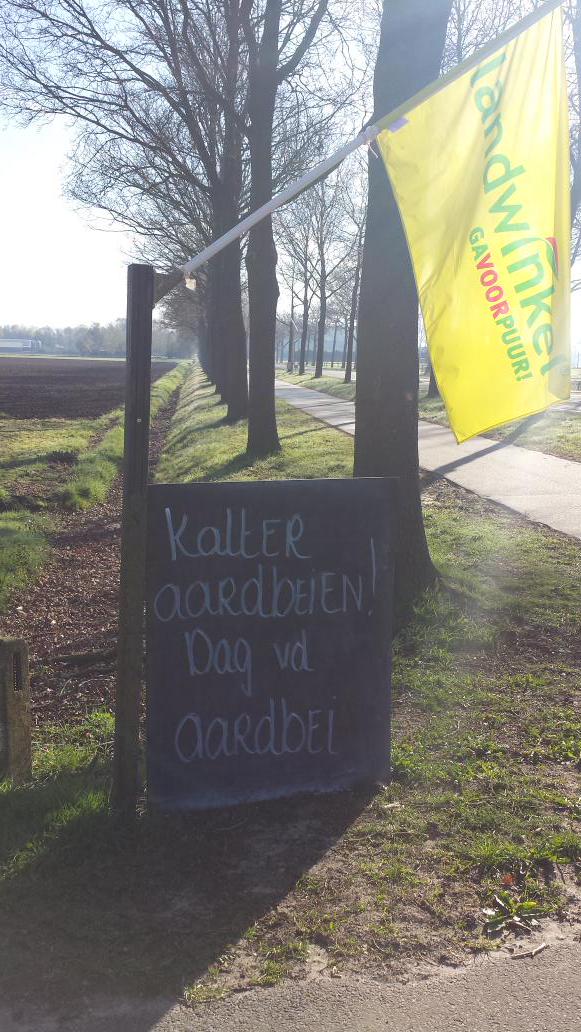 landwinkel
GAVOORPUUR!
KaltER
aardbEIEN!
Dag vd
aardbEI